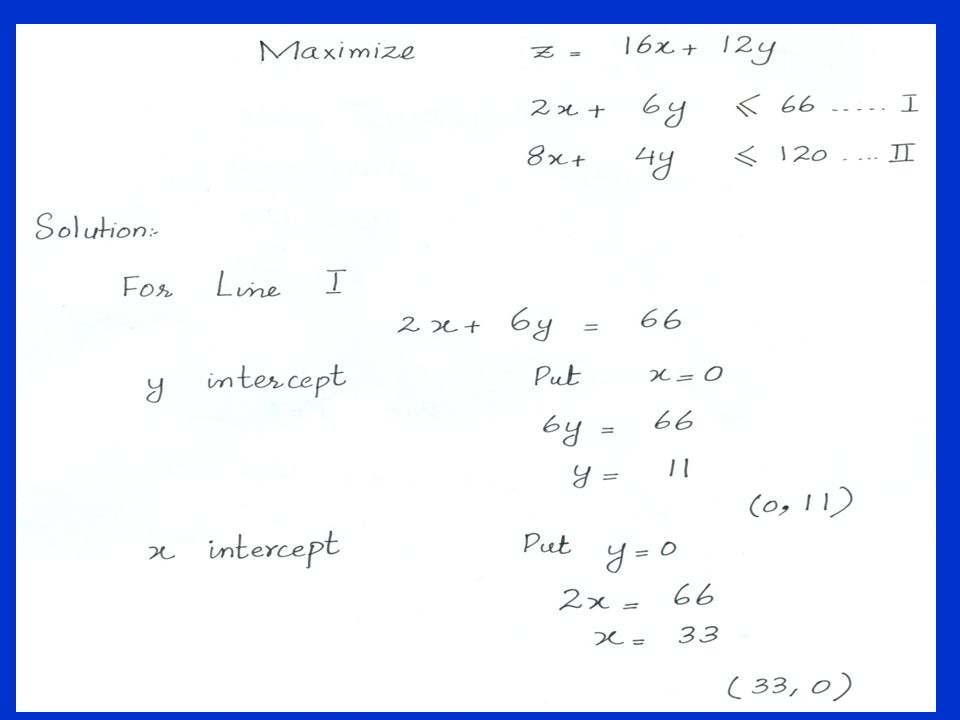 Maximize z = 16x + 12y
2x + 6y ⩽ 66 ..... I
8x + 4y ⩽ 120 .... II
Solution:-
For Line I
2x + 6y = 66
y intercept Put x = 0
6y = 66
y = 11
(0, 11)
x intercept Put y = 0
2x = 66
x = 33
(33, 0)